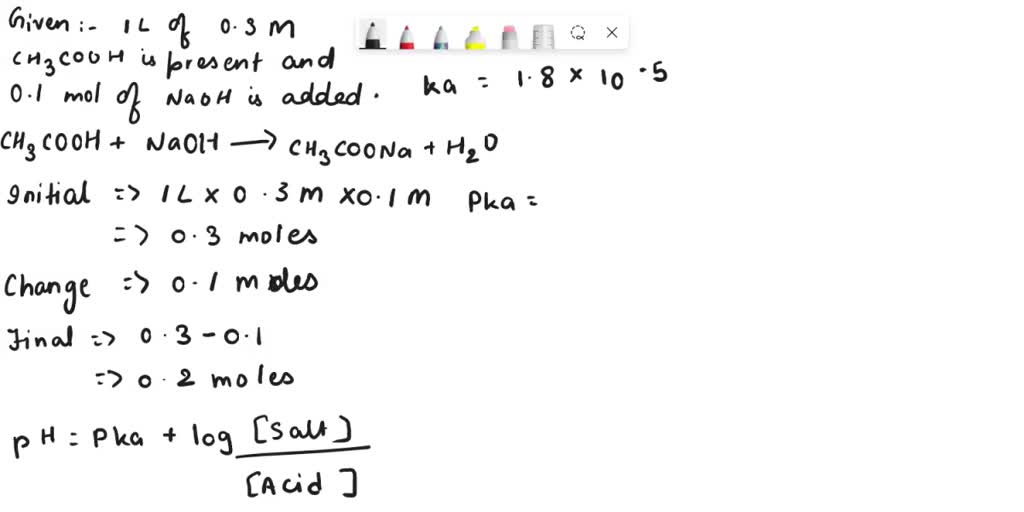 Given :- 1L of 0.3 M
CH3COOH is present and
0.1 mol of NaOH is added.
ka = 1.8 × 10 -5
CH3COOH + NaOH → CH3COONa + H2O
Initial => 1L × 0.3 M × 0.1 M
Pka =
=> 0.3 moles
Change => 0.1 moles
Final => 0.3 - 0.1
=> 0.2 moles
pH = Pka + log [Salt]
[Acid]